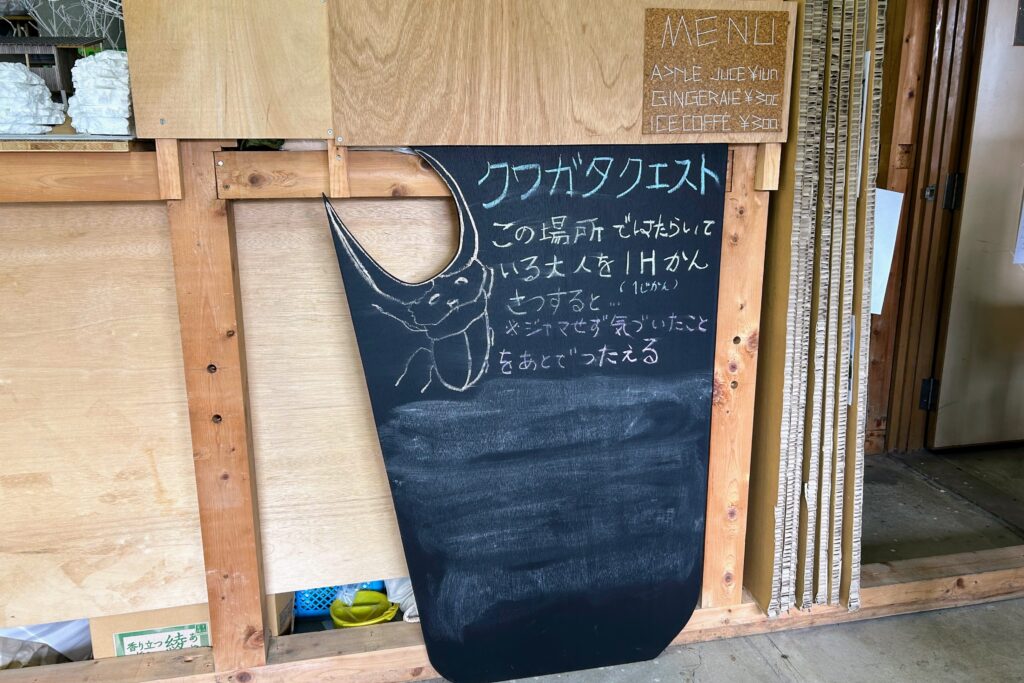 MENU
APPLE JUCE ¥
GINGERALE ¥300
ICE COFFE ¥300
クワガタクエスト
この場所ではたらいて
いる大人を1Hかん
(1じかん)
さつすると…
※ジャマせず気づいたこと
をあとでつたえる
香り立つ
綾